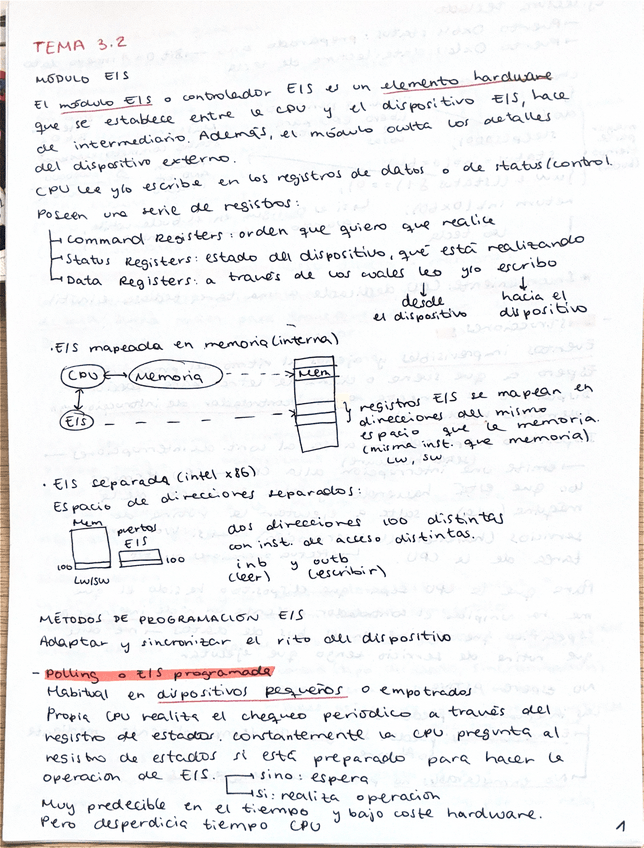 TEMA 3.2
MÓDULO E/S
El módulo E/S o controlador E/S es un elemento hardware
que se establece entre la CPU y el dispositivo E/S, hace
de intermediario. Además, el módulo oculta los detalles
del dispositivo externo.
CPU lee y/o escribe en los registros de datos o de status/control.
Poseen una serie de registros:
Command Registers: orden que quiero que realice
Status Registers: estado del dispositivo, qué está realizando
Data Registers: a través de los cuales leo y/o escribo
desde el dispositivo
hacia el dispositivo
· E/S mapeada en memoria (interna)
CPU
Memoria
Mem
E/S
registros E/S se mapean en
direcciones del mismo
espacio que la memoria.
(misma inst. que memoria)
LW, SW
· E/S separada (intel x86)
Espacio de direcciones separados:
Mem
puertos
E/S
100
100
LW/SW
dos direcciones 100 distintas
con inst. de acceso distintas.
inb y outb
(leer) (escribir)
MÉTODOS DE PROGRAMACIÓN E/S
Adaptar y sincronizar el rito del dispositivo
- Polling o E/S programada
Habitual en dispositivos pequeños o empotrados
Propia CPU realita el chequeo periódico a través del
registro de estados. constantemente la CPU pregunta al
registro de estados si está preparado para hacer la
operación de E/S.
sino: espera
si: realita operación
Muy predecible en el tiempo y bajo coste hardware.
Pero desperdicia tiempo CPU
1